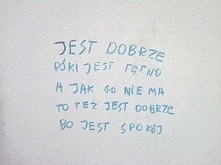 JEST DOBRZE
PÓKI JEST TĘTNO
A JAK GO NIE MA
TO TEŻ JEST DOBRZE
BO JEST SPOKÓJ